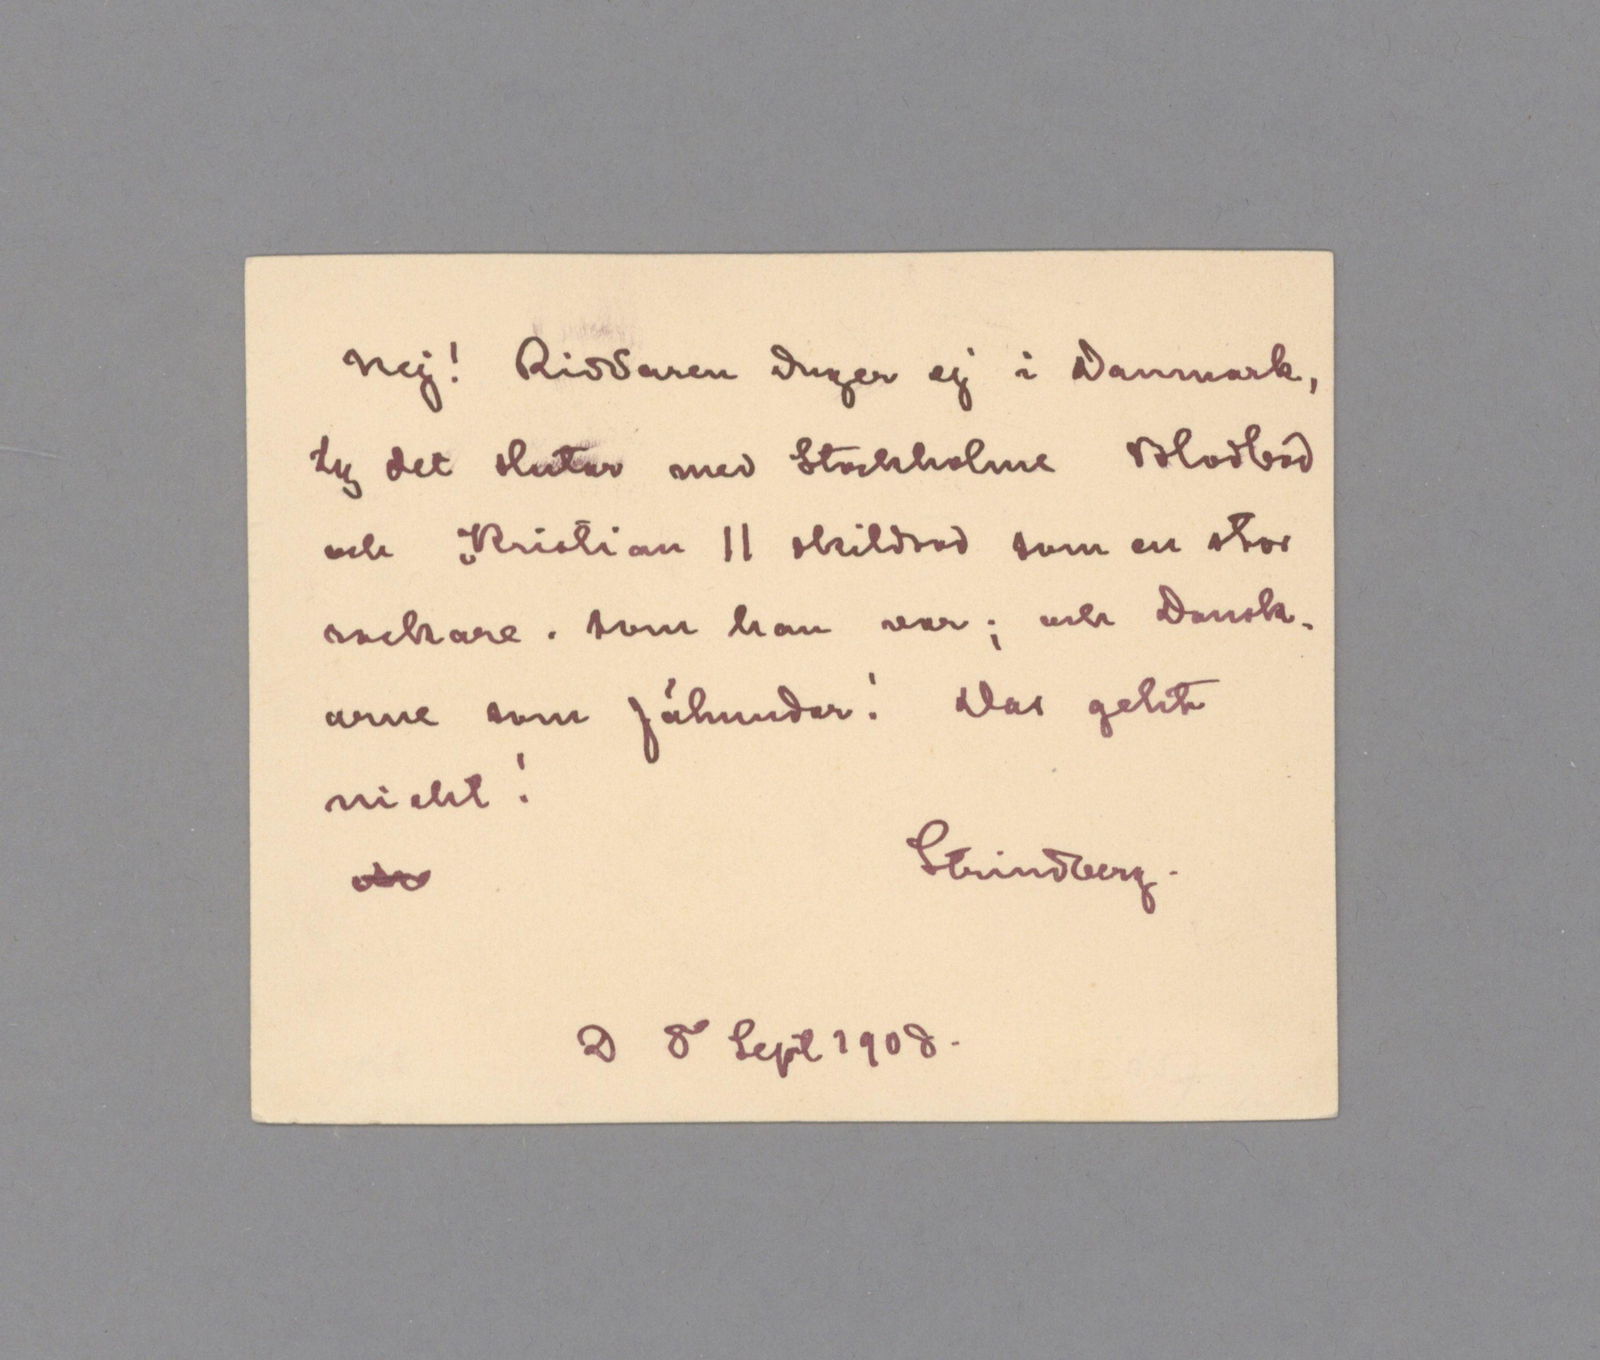 Nej! Riddaren duger ej i Danmark,
ty det slutar med Stockholms Blodbad
och Kristian II skildrad som en stor
rackare. som han var; och Dansk-
arne som fähundar! Das geht
nicht!
Strindberg.
D 8e Sept 1908.